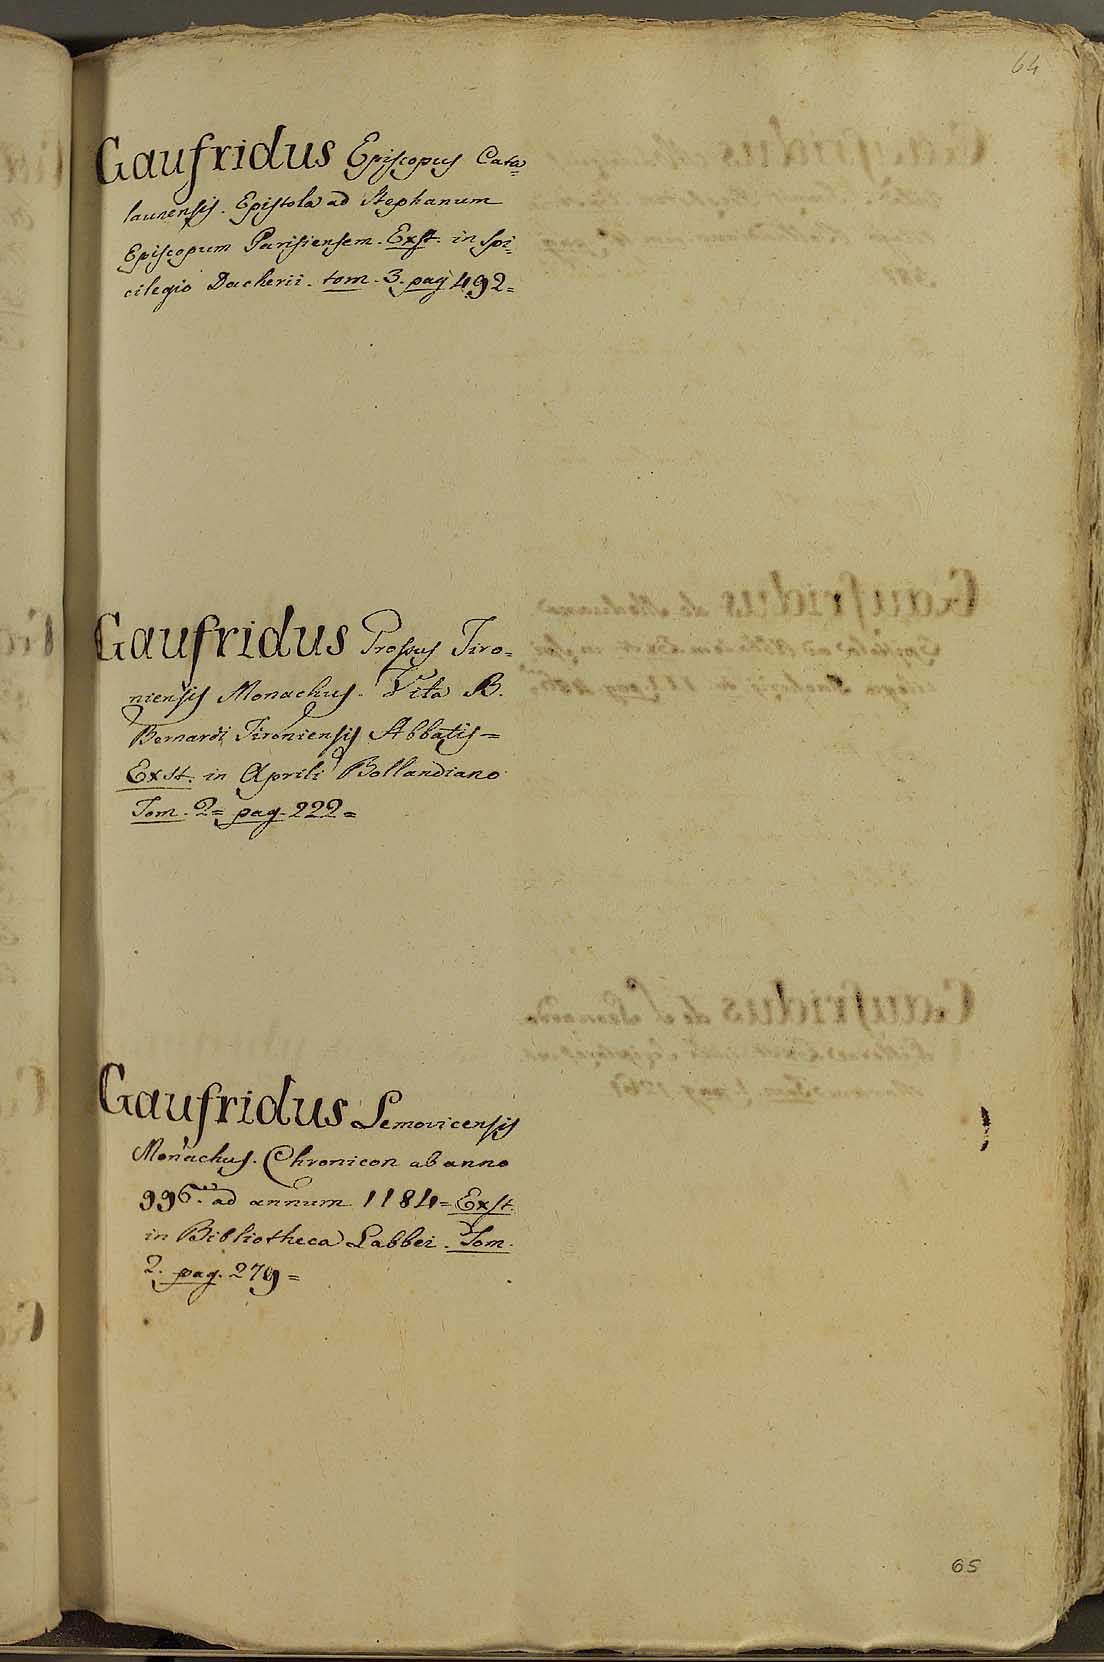 64
Gaufridus Episcopus Cata=
launensis. Epistola ad Stephanum
Episcopum Parisiensem. Exst. in Spi=
cilegio Dacherii. tom. 3. pag 492=
Gaufridus Grossus Tiro=
niensis Monachus. Vita B.
Bernardi Tironiensis Abbatis=
Exst. in Aprili Bollandiano
Tom. 2= pag. 222=
Gaufridus Lemovicensis
Monachus. Chronicon ab anno
996. ad annum 1184= Exst
in Bibliotheca Labbei. Tom.
2. pag. 279=
65